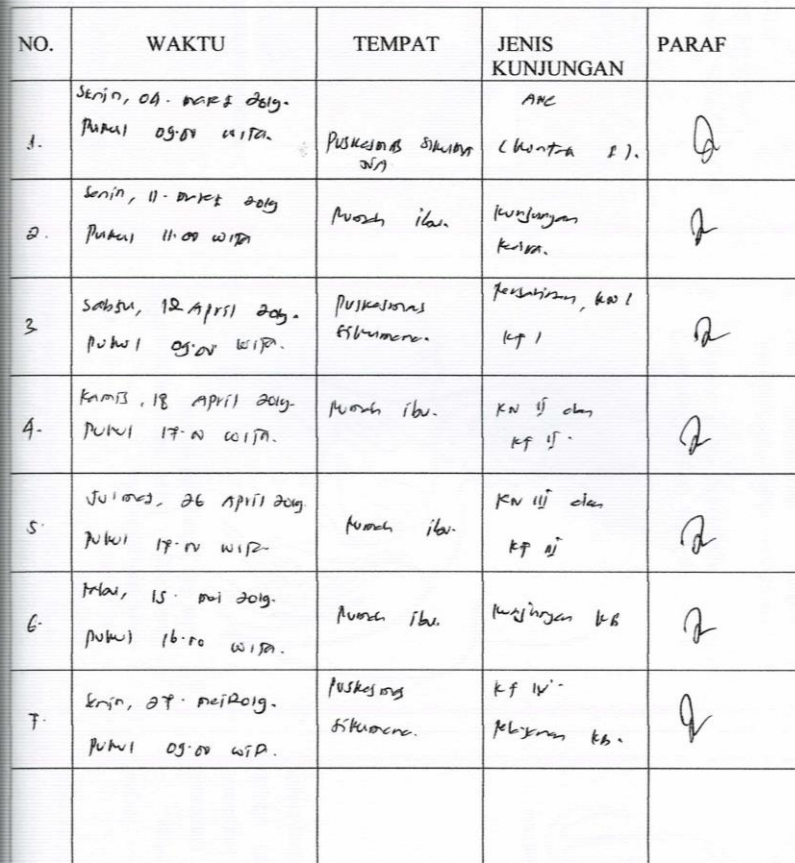 NO. WAKTU TEMPAT JENIS KUNJUNGAN PARAF
1. Senin, 04. Maret 2019.
Pukul 09.00 WITA.
Puskesmas Sikuma
NA
ANC
(Kontak I).
2. Senin, 11. Maret 2019
Pukul 11.00 WITA
Rumah ibu.
Kunjungan
3 Sabtu, 12 April 2019.
Pukul 09.00 WITA.
Puskesmas
Sikumana.
Persalinan, KN I
KF I
4. Kamis, 18 April 2019.
Pukul 17.00 WITA.
Rumah ibu.
KN II dan
KF II.
5. Jumat, 26 April 2019.
Pukul 17.00 WITA
Rumah ibu.
KN III dan
KF III
6. Rabu, 15. Mei 2019.
Pukul 16.00 WITA.
Rumah ibu.
Kunjungan KB
7. Senin, 27. Mei 2019.
Pukul 09.00 WITA.
Puskesmas
Sikumana.
KF IV.
Pelayanan KB.